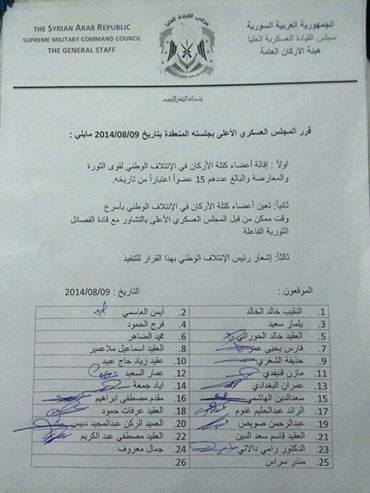 THE SYRIAN ARAB REPUBLIC
SUPREME MILITARY COMMAND COUNCIL
THE GENERAL STAFF
الجمهورية العربية السورية
مجلس القيادة العسكرية العليا
هيئة الأركان العامة
قرر المجلس العسكري الأعلى بجلسته المنعقدة بتاريخ 2014/08/09 مايلي :
اولاً : إقالة أعضاء كتلة الأركان في الإئتلاف الوطني لقوى الثورة
والمعارضة والبالغ عددهم 15 عضواً اعتباراً من تاريخه.
ثانياً: تعين أعضاء كتلة الأركان في الإئتلاف الوطني بأسرع
وقت ممكن من قبل المجلس العسكري الأعلى بالتشاور مع قادة الفصائل
الثورية الفاعلة
ثالثاً: إشعار رئيس الإئتلاف الوطني بهذا القرار للتنفيذ
الموقعون : التاريخ : 2014/08/09
1. النقيب خالد الخالد 2. أيمن العاسمي
3. يلماز سعيد 4. فرج الحمود
5. العقيد خالد الحوراني 6. محمد الضاهر
7. فارس يحيى 8. العقيد اسماعيل ملاعمير
9. حذيفة الشغري 10. عقيد زياد حاج عبيد
11. مازن قنيفدي 12. عمار السعيد
13. عمران البغدادي 14. اياد جمعة
15. سعدالدين الهاشمي 16. مقدم مصطفى ابراهيم
17. الرائد عبدالحليم غنوم 18. العقيد عرفات حمود
19. عبدالرحمن صويص 20. العميد الركن عبدالمجيد دبيس
21. العقيد قاسم سعد الدين 22. العقيد مصطفى عبد الكريم
23. الدكتور رامي دالاتي 24. جمال معروف
25. منذر سراس 26.